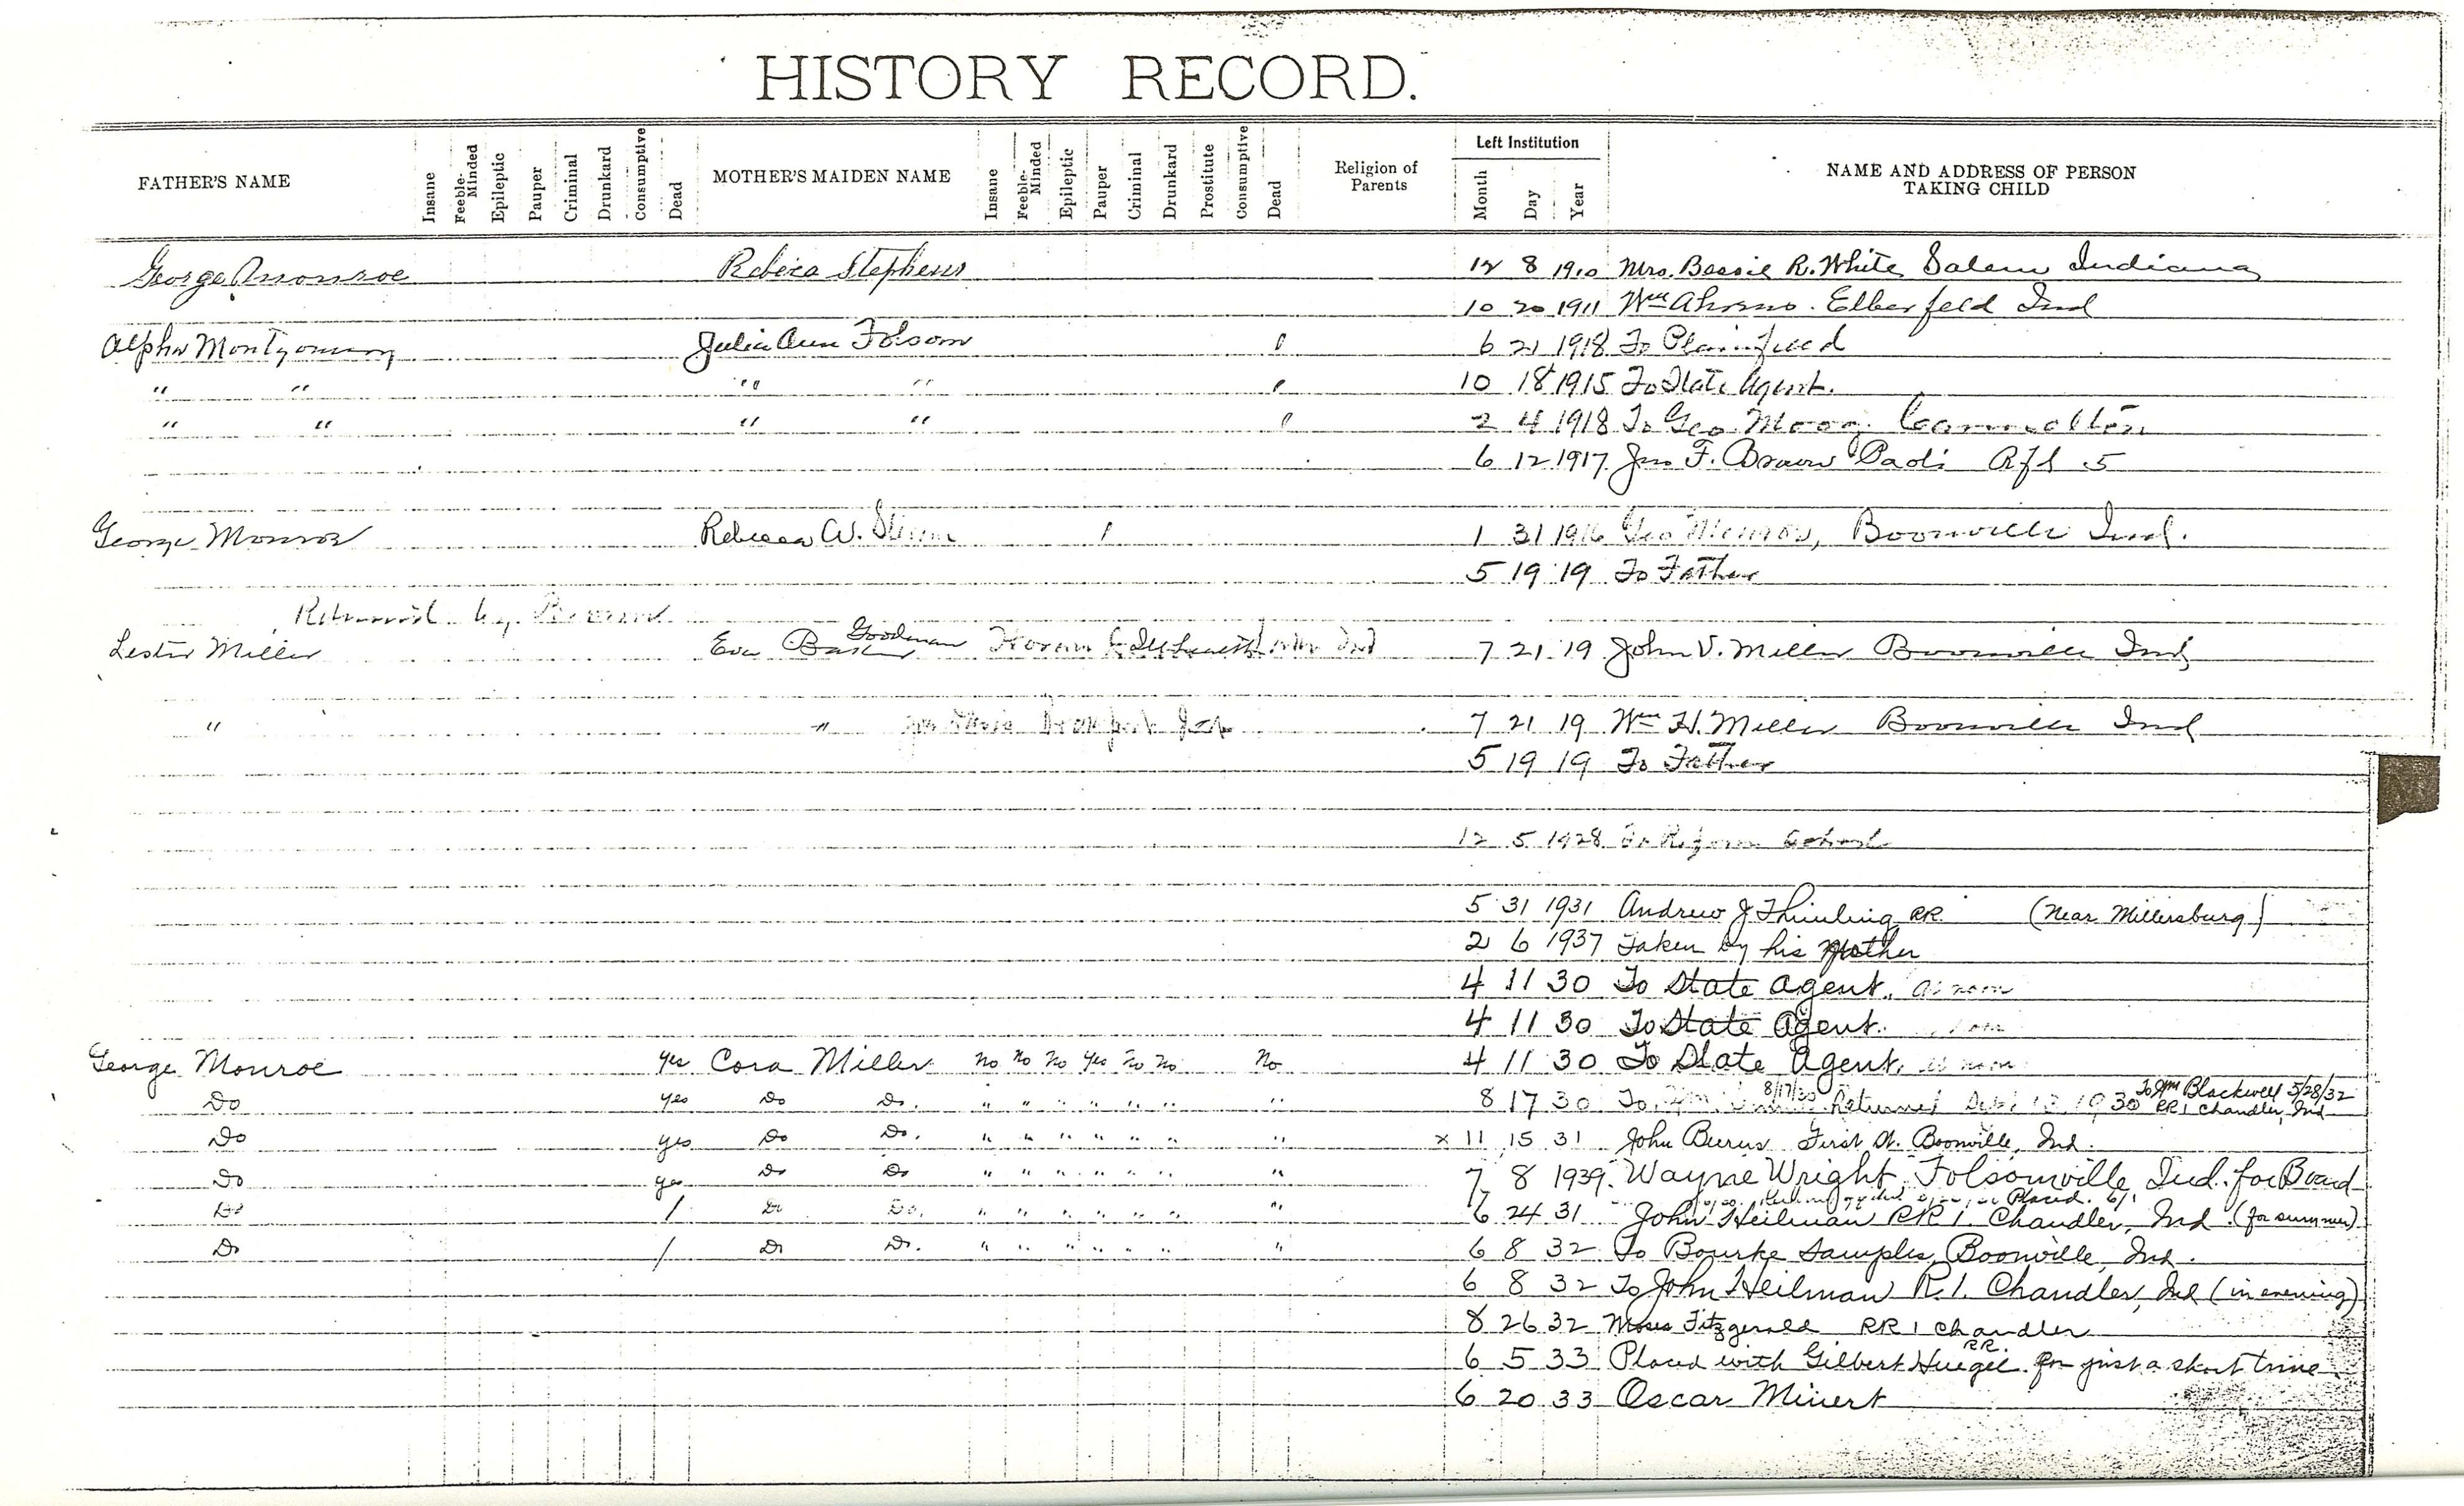 HISTORY RECORD.
FATHER'S NAME Insane Feeble-Minded Epileptic Pauper Criminal Drunkard Consumptive Dead MOTHER'S MAIDEN NAME Insane Feeble-Minded Epileptic Pauper Criminal Drunkard Prostitute Consumptive Dead Religion of Parents Left Institution Month Day Year NAME AND ADDRESS OF PERSON TAKING CHILD
George Monroe Rebeca Stephens 12 8 1910 Mrs. Bessie R. White Salem Indiana
10 20 1911 Wm Ahrens. Elberfeld Ind
Alpha Montgomery Julia Ann Folsom / 6 21 1918 To Plainfield
" " " " / 10 18 1915 To State Agent.
" " " " / 2 4 1918 To Geo Moog Cannelton
6 12 1917 Jno F. Brown Paoli Rfd 5
George Monroe Rebecca W. / 1 31 1916 Geo Monroe, Boonville Ind.
5 19 19 To Father
Returned by
Lester Miller Eva Goodman 7 21 19 John V. Miller Boonville Ind
" " 7 21 19 Wm H. Miller Boonville Ind
5 19 19 To Father
12 5 1928 To Reform School
5 31 1931 Andrew J Thimling RR (Near Millersburg)
2 6 1937 Taken by his Mother
4 11 30 To State Agent. at noon
4 11 30 To State Agent. noon
George Monroe yes Cora Miller no no no yes no no no 4 11 30 To State Agent. at noon
Do yes Do Do. " " " " " " " 8 17 30 To 8/17/30 Returned Sept 13 1930 To Wm Blackwell 5/28/32 RR 1 Chandler, Ind
Do yes Do Do. " " " " " " " x 11 15 31 John Burns First St. Boonville, Ind.
Do yes Do Do " " " " " " " 7 8 1939. Wayne Wright, Folsomville Ind. for Board
Placed 6/1
Do / Do Do. " " " " " " " 6 24 31 John Heilman RR 1. Chandler, Ind. (for summer)
Do / Do Do. " " " " " " " 6 8 32 To Bourke Samples, Boonville, Ind.
6 8 32 To John Heilman R.1. Chandler, Ind (in evening)
8 26 32 Moses Fitzgerald RR 1 Chandler
6 5 33 Placed with Gilbert Huegel RR. for just a short time
6 20 33 Oscar Minert